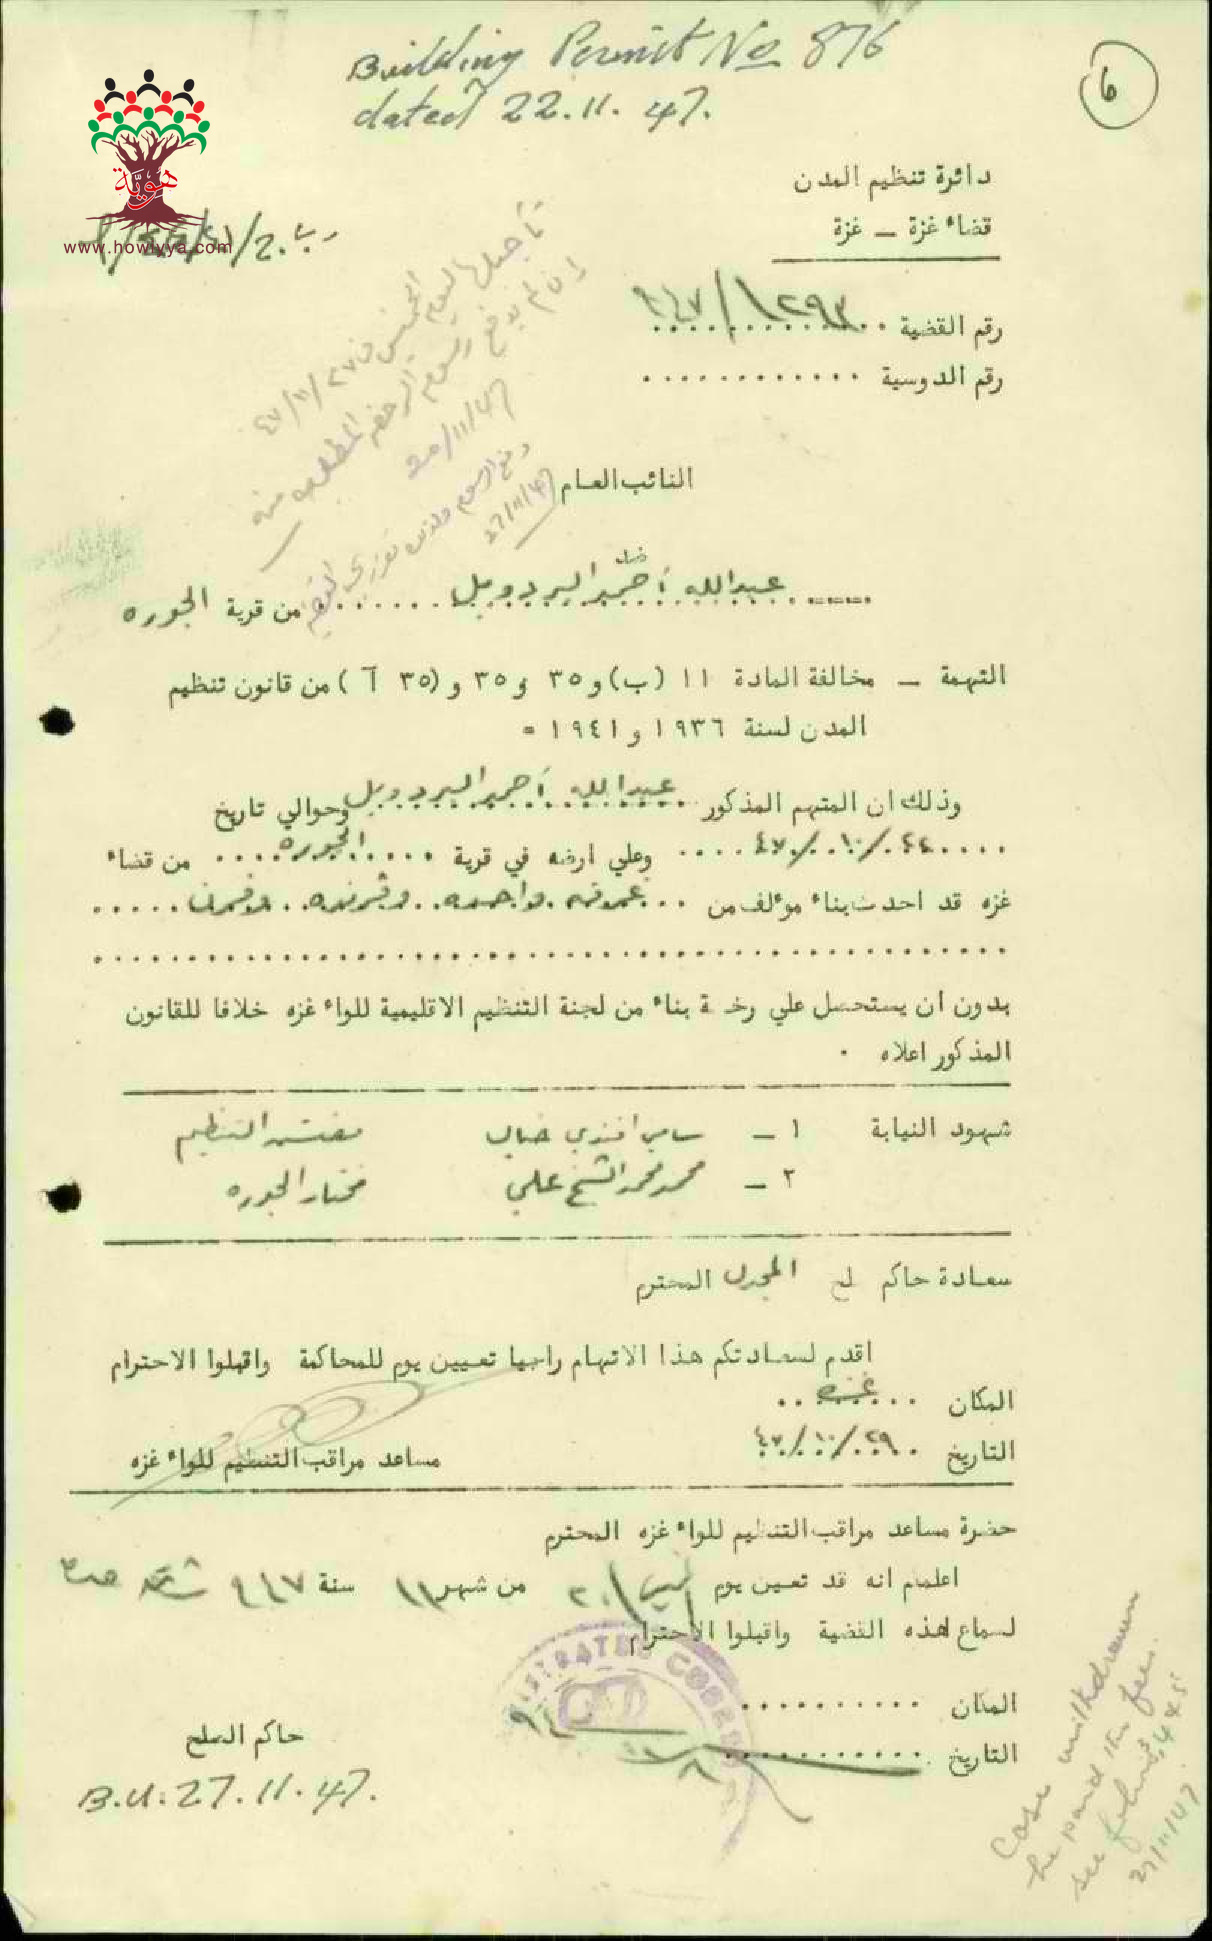 Building Permit No 876
dated 22.11.47.
6
هويّة
www.howiyya.com
دائرة تنظيم المدن
قضاء غزة — غزة
رقم القضية ١٢٩٣/٩٤٧
رقم الدوسية ............
٢٠/١١/٤٧
٢٧/١١/٤٧
النائب العام
ضد
عبدالله أحمد البردويل ...... من قرية الجوره
التهمة — مخالفة المادة ١١ (ب) و ٣٥ و ٣٥ و (٣٥ آ) من قانون تنظيم
المدن لسنة ١٩٣٦ و ١٩٤١ =
وذلك ان المتهم المذكور عبدالله أحمد البردويل وحوالي تاريخ
/١٠/٤٧ .... وعلي ارضه في قرية ..... الجوره .... من قضاء
غزه قد احدث بناء موءلف من ... غرفه واحده .. وفرنده ..
بدون ان يستحصل علي رخصة بناء من لجنة التنظيم الاقليمية للواء غزه خلافا للقانون
المذكور اعلاه .
شهود النيابة ١ — سامي افندي مفتش التنظيم
٢ — محمد محمد الشيخ علي مختار الجوره
سعادة حاكم صلح المجدل المحترم
اقدم لسعادتكم هذا الاتهام راجيا تعيين يوم للمحاكمة واقبلوا الاحترام
المكان ... غزه ..
التاريخ . ٢٩/١٠/٤٧
مساعد مراقب التنظيم للواء غزه
حضرة مساعد مراقب التنظيم للواء غزه المحترم
اعلمام انه قد تعين يوم ٢٠ من شهر ١١ سنة ٩٤٧
لسماع هذه القضية واقبلوا الاحترام
المكان ..........
التاريخ ...........
حاكم الصلح
B.U. 27.11.47.
Case withdrawn
he paid the fees.
see
27/11/47